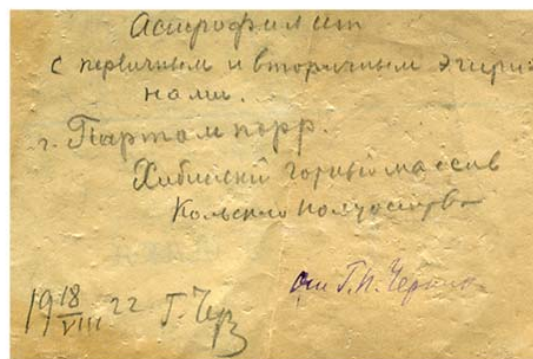 Астрофиллит
с первичным и вторичным эгири-
нами.
г. Партомпорр.
Хибинский горный массив
Кольского полуострова
от Г.П. Черника
19 18/VIII 22 Г. Чер